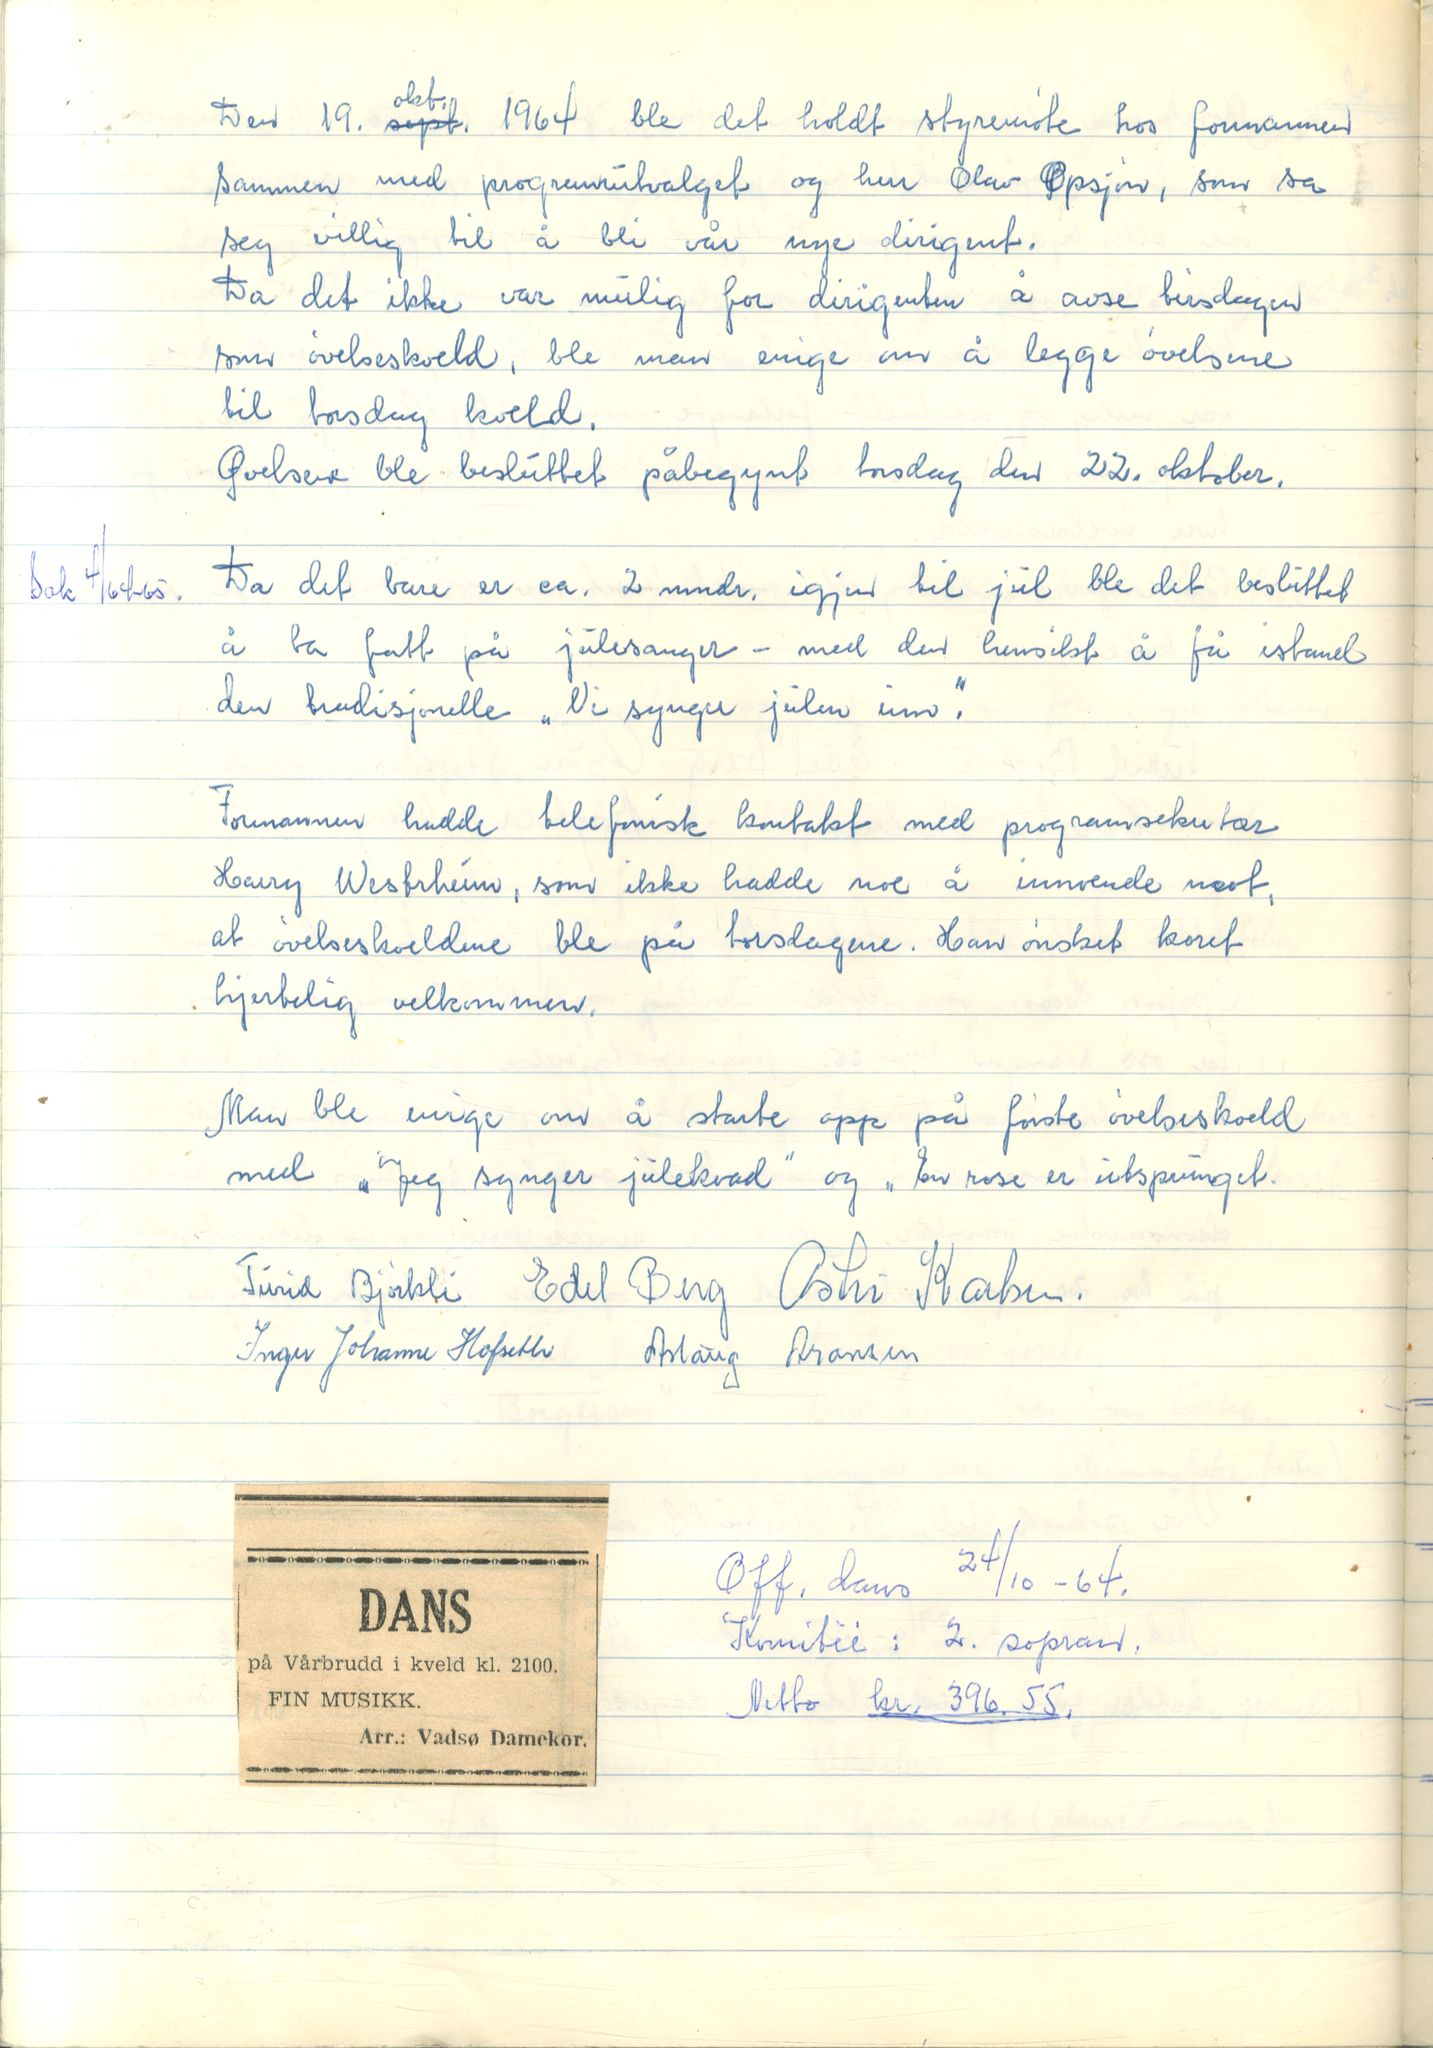 Den 19. okt. 1964 ble det holdt styremöte hos formannen
sammen med programutvalget og herr Olav Opsjön, som sa
seg villig til å bli vår nye dirigent.
Da det ikke var mulig for dirigenten å avse tirsdagen
som övelseskveld, ble man enige om å legge övelsene
til torsdag kveld.
Øvelsene ble besluttet påbegynt torsdag den 22. oktober.
Sak 4/64-65. Da det bare er ca. 2 mndr. igjen til jul ble det besluttet
å ta fatt på julesanger - med den hensikt å få istand
den tradisjonelle „Vi synger julen inn".
Formannen hadde telefonisk kontakt med programsekretær
Harry Westrheim, som ikke hadde noe å innvende mot,
at övelseskveldene ble på torsdagene. Han önsket koret
hjertelig velkommen.
Man ble enige om å starte opp på förste övelseskveld
med „Jeg synger julekvad" og „En rose er utsprunget.
Turid Björkli Edel Berg Astri Karlsen.
Inger Johanne Hofseth Aslaug Aronsen
DANS
på Vårbrudd i kveld kl. 2100.
FIN MUSIKK.
Arr.: Vadsø Damekor.
Off. dans 24/10 - 64.
Komitéé : 2. sopran.
Netto kr. 396.55.